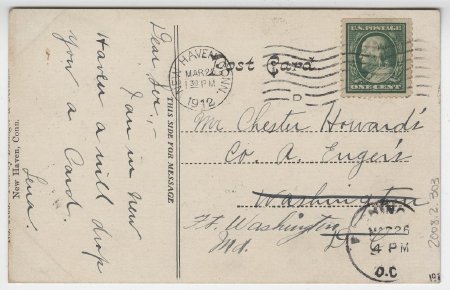 Post Card
THIS SIDE FOR MESSAGE
Dear Sir,-
I am in New
Haven a will drop
you a Card.
Lena.
New Haven, Conn.
NEW HAVEN, CONN.
MAR 2
1 30 PM
1912
D
U.S. POSTAGE
ONE CENT
Mr Chester Howards
Co. A. Engers
Washington
D.C.
Ft. Washington
Md.
4 PM
D.C
2008.2.303